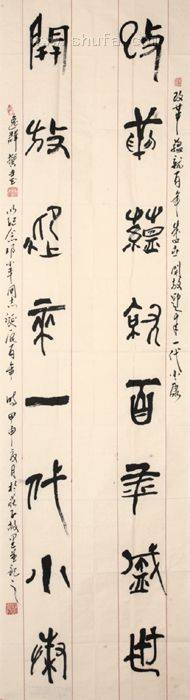 改革蘊就百年盛世開放迎來一代小康
改革蘊就百年盛世
開放迎來一代小康
撰書 以紀念鄧小平同志誕辰百年 時甲申夏月於故里並記之